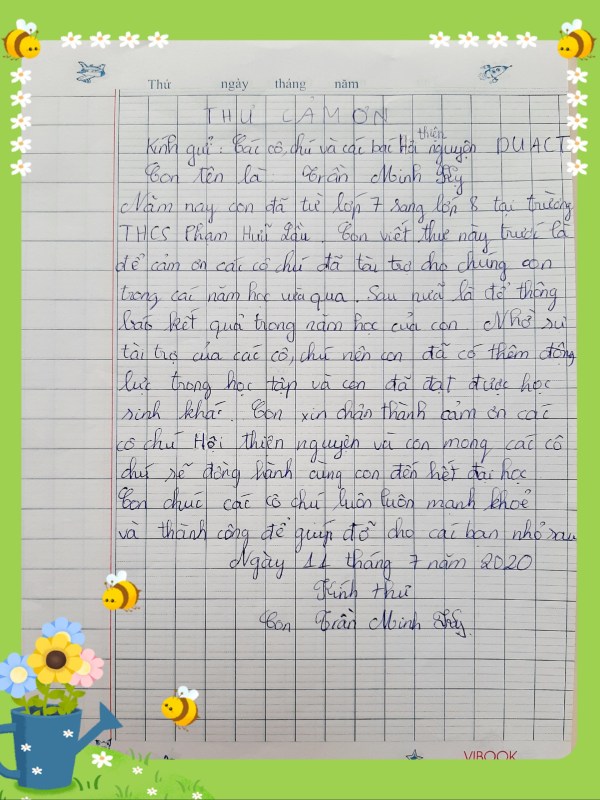 Thứ ngày tháng năm
THƯ CẢM ƠN
Kính gửi: Các cô, chú và các bác Hội thiện nguyện DUACT
Con tên là Trần Minh Thy
Năm nay con đã từ lớp 7 sang lớp 8 tại trường
THCS Phạm Hữu Lầu. Con viết thư này trước là
để cảm ơn các cô chú đã tài trợ cho chúng con
trong các năm học vừa qua. Sau nữa là để thông
báo kết quả trong năm học của con. Nhờ sự
tài trợ của các cô, chú nên con đã có thêm động
lực trong học tập và con đã đạt được học
sinh khá. Con xin chân thành cảm ơn các
cô chú Hội thiện nguyện và con mong các cô
chú sẽ đồng hành cùng con đến hết đại học
Con chúc các cô chú luôn luôn mạnh khoẻ
và thành công để giúp đỡ cho các bạn nhỏ sau
Ngày 11 tháng 7 năm 2020
Kính thư
Con Trần Minh Thy.
VIBOOK